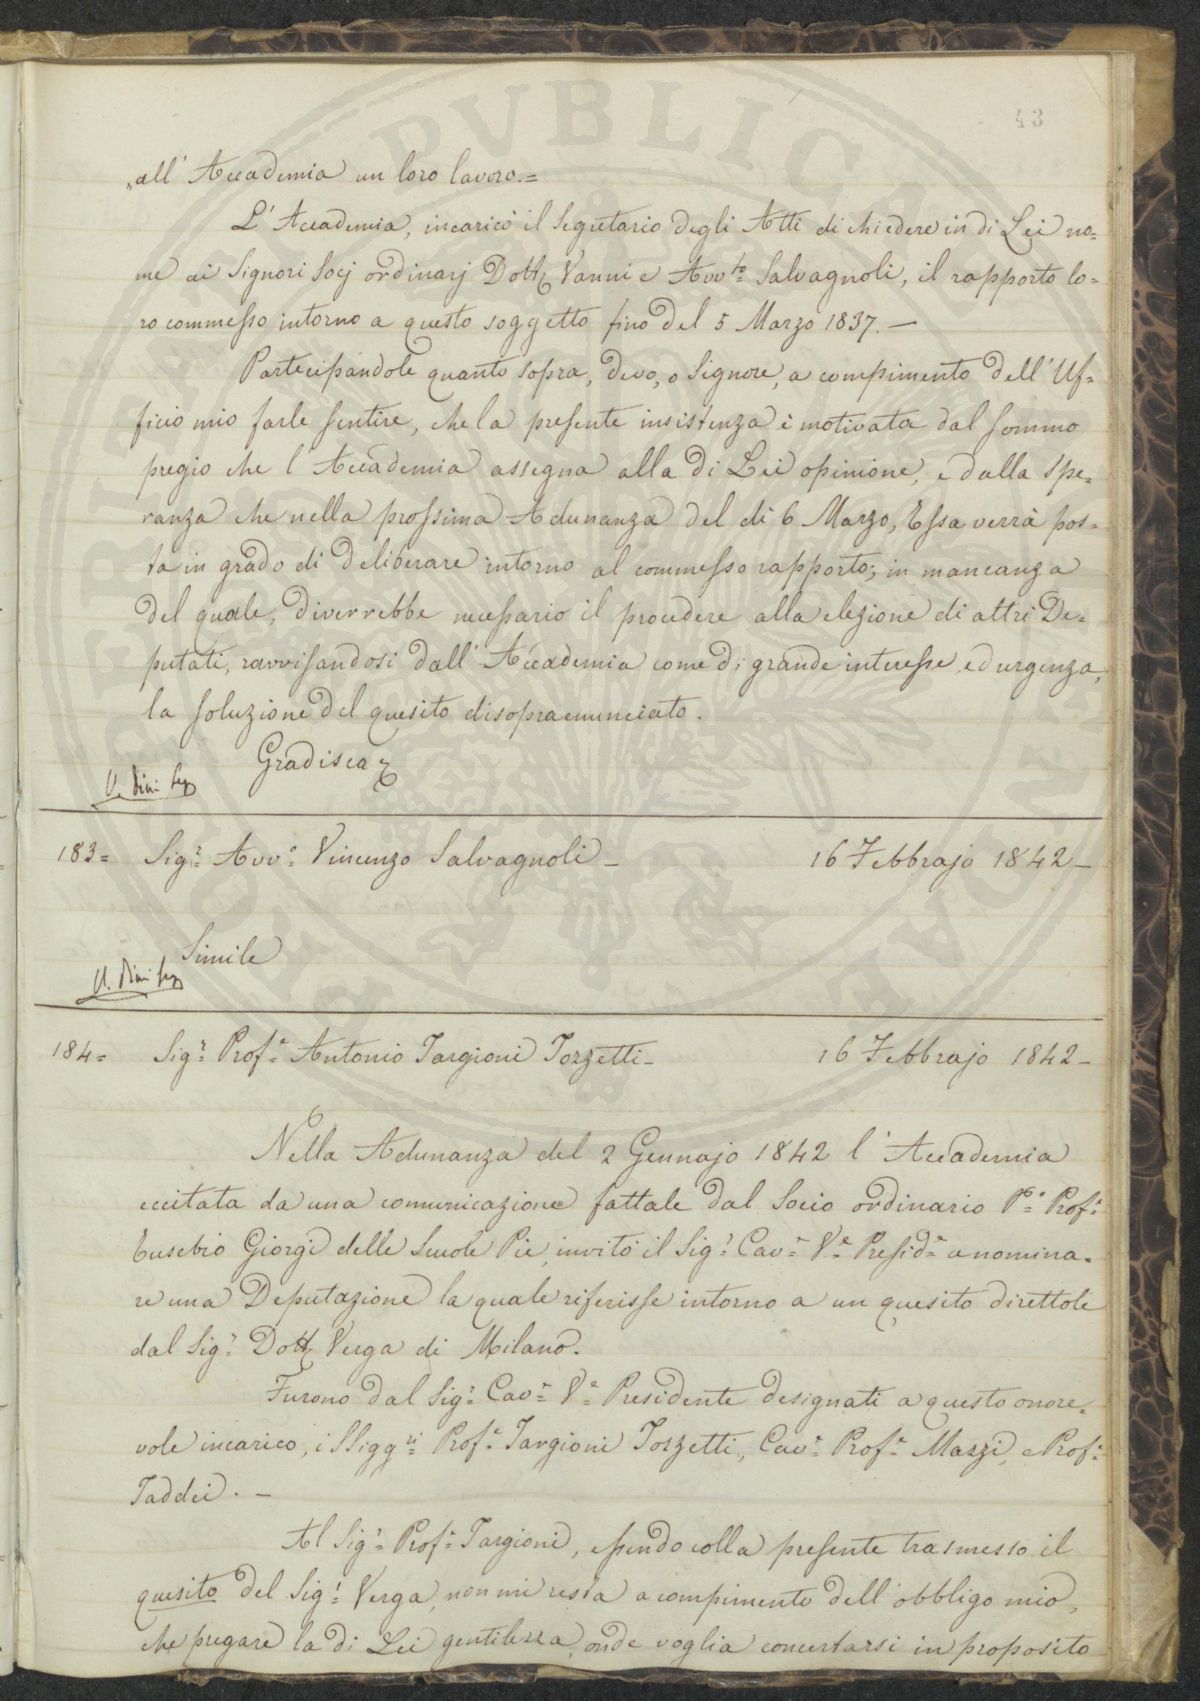 43
„all' Accademia un loro lavoro.=
L'Accademia, incaricò il Segretario degli Atti di chiedere in di Lei no=
me ai Signori Socj ordinarj Dott. Vanni e Avv.to Salvagnoli, il rapporto lo=
ro commesso intorno a questo soggetto fino del 5 Marzo 1837. —
Partecipandole quanto sopra, devo, o Signore, a compimento dell'Uf=
ficio mio farle sentire, che la presente insistenza è motivata dal sommo
pregio che l'Accademia assegna alla di Lei opinione, e dalla spe=
ranza che nella prossima Adunanza del dì 6 Marzo, Essa verrà pos=
ta in grado di deliberare intorno al commesso rapporto; in mancanza
del quale, diverrebbe necessario il procedere alla elezione di altri De=
putati, ravvisandosi dall'Accademia come di grande interesse, ed urgenza,
la soluzione del quesito disopraenunciato.
Gradisca
183= Sig.r Avv.o Vincenzo Salvagnoli — 16 Febbrajo 1842 —
Simile
184= Sig.r Prof.e Antonio Targioni Tozzetti — 16 Febbrajo 1842 —
Nella Adunanza del 2 Gennajo 1842 l'Accademia
eccitata da una comunicazione fattale dal Socio ordinario P.e Prof.e
Eusebio Giorgi delle Scuole Pie, invitò il Sig.r Cav.e V.e Presid.e a nomina=
re una Deputazione la quale riferisse intorno a un quesito direttole
dal Sig.r Dott. Verga di Milano.
Furono dal Sig.r Cav.e V.e Presidente designati a questo onore=
vole incarico, i SSigg.ri Prof.e Targioni Tozzetti, Cav.e Prof.e Mazzi, e Prof.e
Taddei. —
Al Sig.r Prof.e Targioni, essendo colla presente trasmesso il
quesito del Sig.r Verga, non mi resta a compimento dell'obbligo mio,
che pregare la di Lei gentilezza, onde voglia concertarsi in proposito